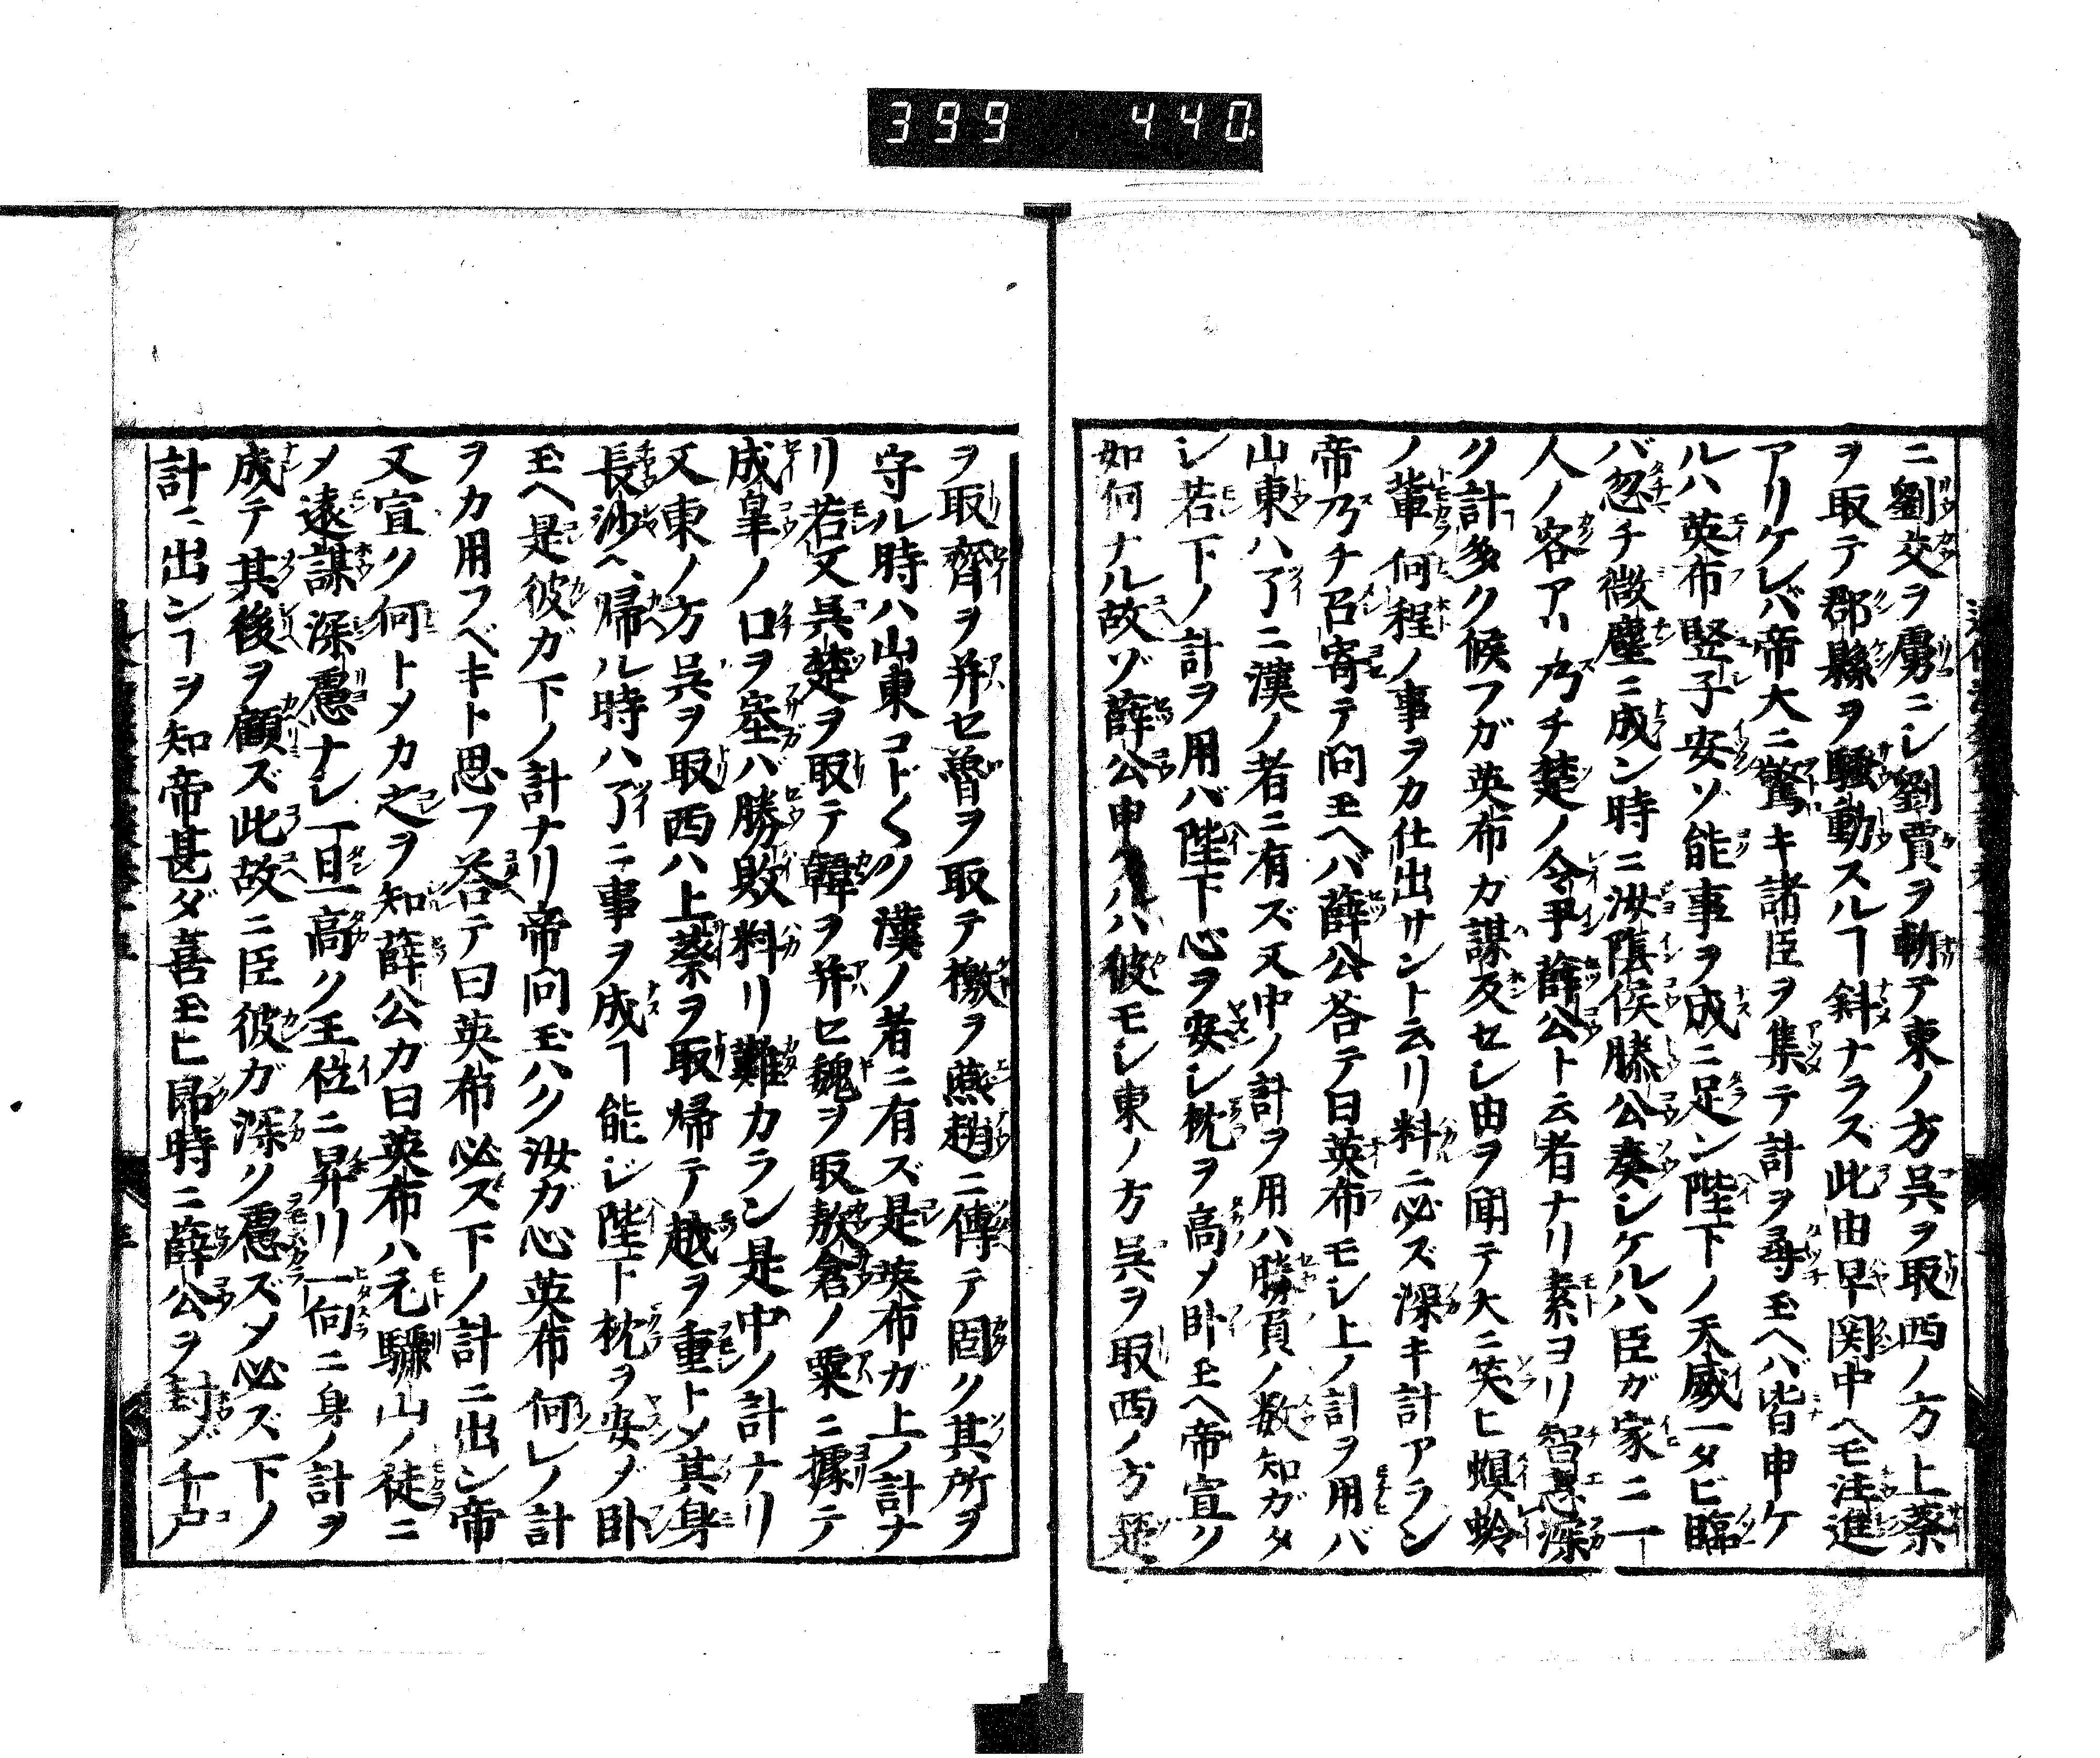 399 440
ニ劉交ヲ虜ニシ劉賈ヲ斬テ東ノ方呉ヲ取西ノ方上蔡
ヲ取テ郡縣ヲ騒動スルヿ斜ナラズ此由早関中ヘモ注進
アリケレバ帝大ニ驚キ諸臣ヲ集テ計ヲ尋玉ヘバ皆申ケ
ルハ英布竪子安ゾ能事ヲ成ニ足ン陛下ノ天威一タビ臨
バ忽チ微塵ニ成ン時ニ汝陰侯滕公奏シケルハ臣ガ家ニ一
人ノ客アリ乃チ楚ノ令尹薛公ト云者ナリ素ヨリ智恵深
ク計多ク候フガ英布ガ謀反セシ由ヲ聞テ大ニ笑ヒ螟蛉
ノ輩何程ノ事ヲカ仕出サント云リ料ニ必ズ深キ計アラン
帝乃チ召寄テ問玉ヘバ薛公荅テ曰英布モシ上ノ計ヲ用バ
山東ハ了ニ漢ノ者ニ有ズ又中ノ計ヲ用ハ勝負ノ数知ガタ
シ若下ノ計ヲ用バ陛下心ヲ安シ枕ヲ高メ卧玉ヘ帝宣ク
如何ナル故ゾ薛公申クハ彼モシ東ノ方呉ヲ取西ノ方楚
ヲ取齊ヲ并セ魯ヲ取テ檄ヲ燕趙ニ傳テ固ク其所ヲ
守ル時ハ山東コト〲ク漢ノ者ニ有ズ是英布ガ上ノ計ナ
リ若又呉楚ヲ取テ韓ヲ并セ魏ヲ取敖倉ノ粟ニ據テ
成皐ノ口ヲ塞バ勝敗料リ難カラン是中ノ計ナリ
又東ノ方呉ヲ取西ハ上蔡ヲ取帰テ越ヲ重トメ其身
長沙ヘ帰ル時ハ了ニ事ヲ成ヿ能ジ陛下枕ヲ安メ卧
玉ヘ是彼ガ下ノ計ナリ帝問玉ハク汝ガ心英布何レノ計
ヲカ用フベキト思フ荅テ曰英布必ズ下ノ計ニ出ン帝
又宣ク何トメカ之ヲ知薛公カ曰英布ハ元驪山ノ徒ニ
メ遠謀深慮ナシ一旦高ク王位ニ昇リ一向ニ身ノ計ヲ
成テ其後ヲ顧ズ此故ニ臣彼ガ深ク慮ズメ必ズ下ノ
計ニ出ンヿヲ知帝甚ダ喜玉ヒ即時ニ薛公ヲ封メ千戸